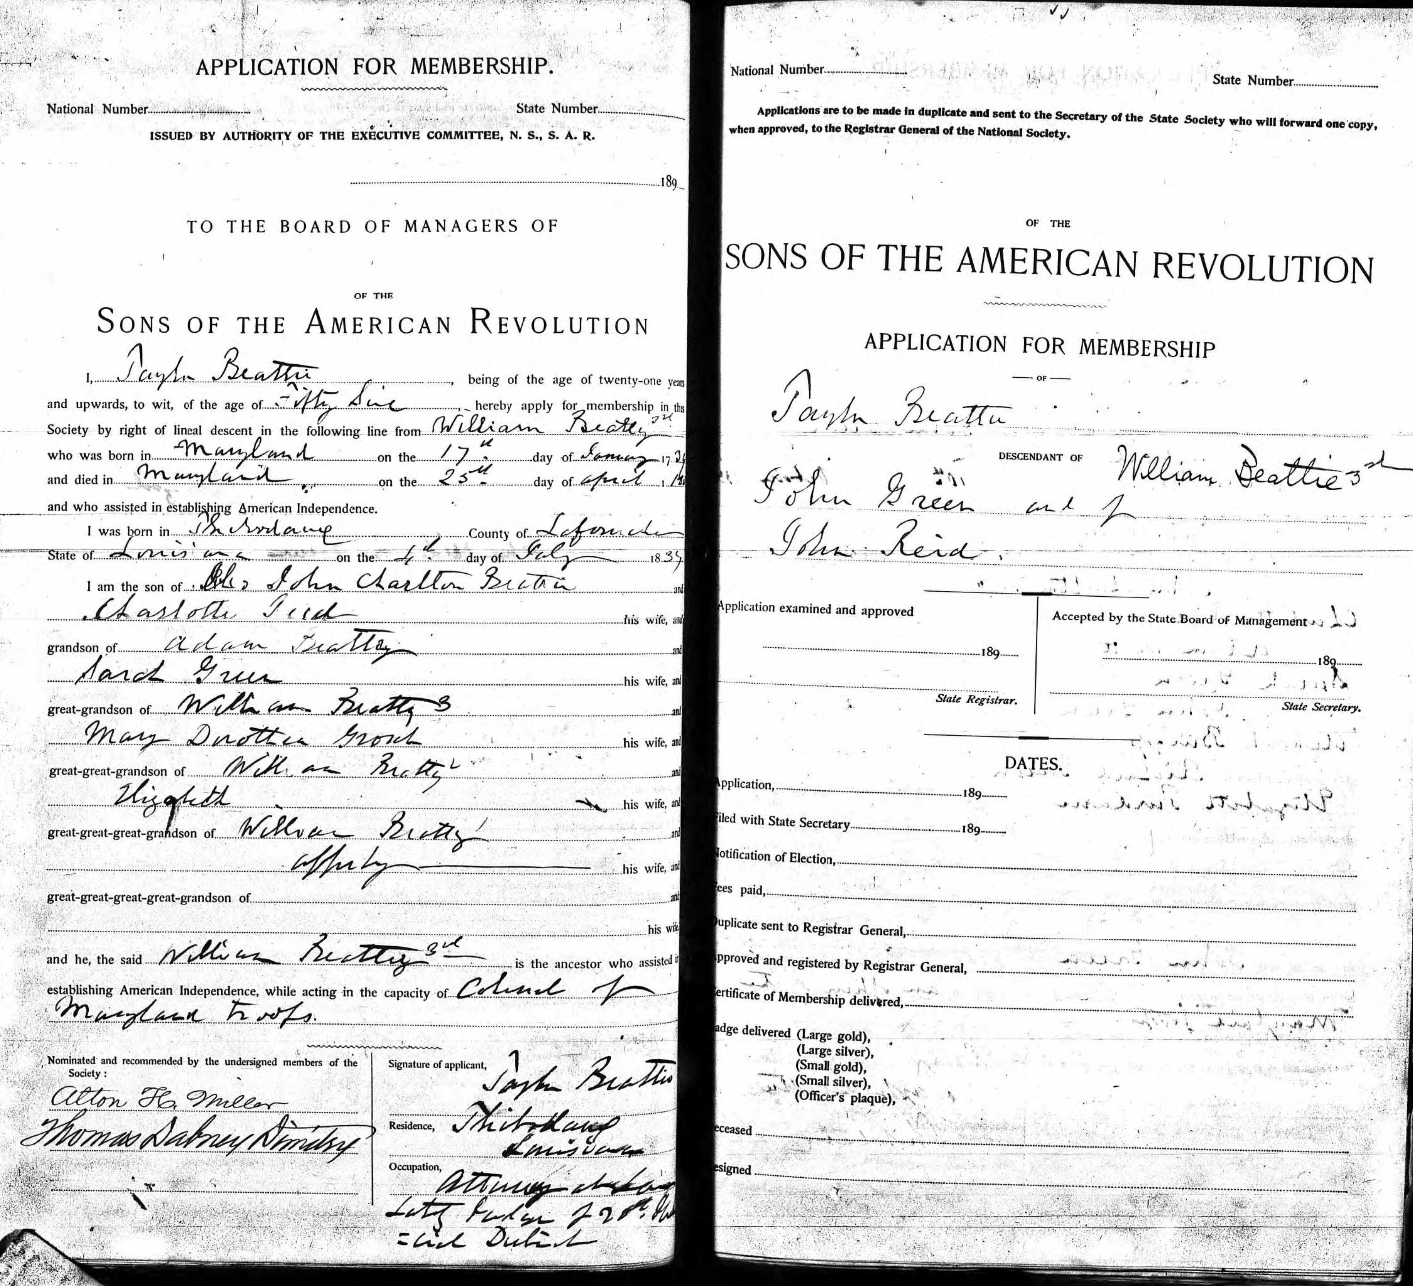 APPLICATION FOR MEMBERSHIP.
National Number
State Number
ISSUED BY AUTHORITY OF THE EXECUTIVE COMMITTEE, N. S., S. A. R.
189
TO THE BOARD OF MANAGERS OF
OF THE
SONS OF THE AMERICAN REVOLUTION
I, Taylor Beattie, being of the age of twenty-one years
and upwards, to wit, of the age of Fifty hereby apply for membership in this
Society by right of lineal descent in the following line from William Beatty 3rd
who was born in Maryland on the 17th day of January 17
and died in Maryland on the 25th day of April 1
and who assisted in establishing American Independence.
I was born in Thibodaux County of Lafourche
State of Louisiana on the 4th day of July 183
I am the son of John Charlton Beattie and
Charlotte Reid his wife, and
grandson of Adam Beatty and
Sarah Green his wife, and
great-grandson of William Beatty 3 and
Mary Dorothea Grosh his wife, and
great-great-grandson of William Beatty 2 and
Elizabeth his wife, and
great-great-great-grandson of William Beatty 1 and
his wife, and
great-great-great-great-grandson of and
his wife
and he, the said William Beatty 3rd is the ancestor who assisted
establishing American Independence, while acting in the capacity of Colonel of
Maryland troops.
Nominated and recommended by the undersigned members of the
Society :
Alton H. Miller
Thomas Dabney Dimitry
Signature of applicant,
Taylor Beattie
Residence, Thibodaux
Louisiana
Occupation,
Attorney at Law
Lately Judge of 20th Jud
=icial District
National Number
State Number
Applications are to be made in duplicate and sent to the Secretary of the State Society who will forward one copy,
when approved, to the Registrar General of the National Society.
OF THE
SONS OF THE AMERICAN REVOLUTION
APPLICATION FOR MEMBERSHIP
OF
Taylor Beattie
DESCENDANT OF William Beattie 3rd
John Green and of
John Reid.
Application examined and approved
189
State Registrar.
Accepted by the State Board of Management
189
State Secretary.
DATES.
pplication, 189
iled with State Secretary 189
otification of Election,
ees paid,
uplicate sent to Registrar General,
pproved and registered by Registrar General,
ertificate of Membership delivered,
adge delivered (Large gold),
(Large silver),
(Small gold),
(Small silver),
(Officer's plaque),
eceased
esigned